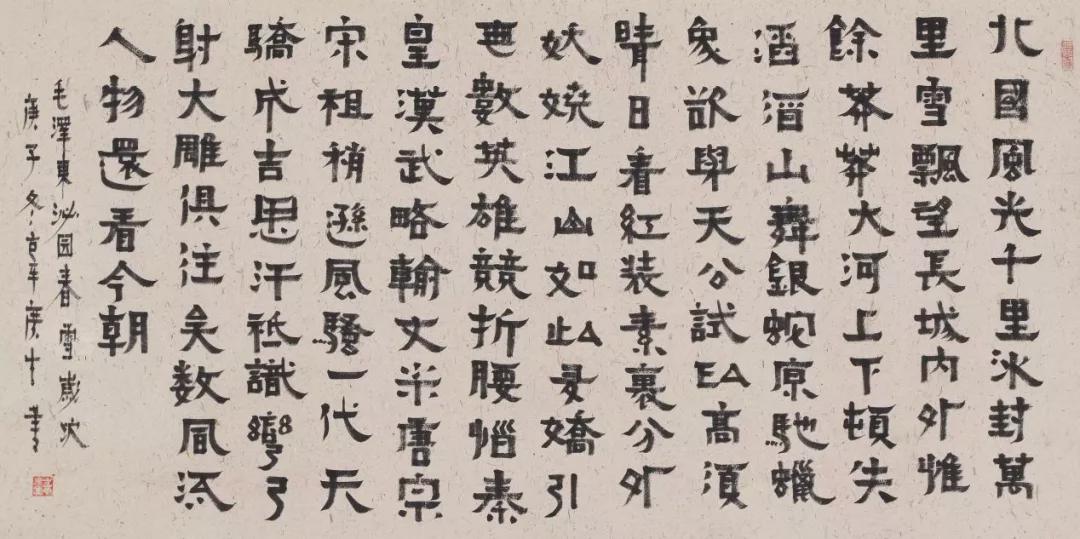 北國風光千里冰封萬
里雪飄望長城内外惟
餘莽莽大河上下頓失
滔滔山舞銀蛇原馳蠟
象欲與天公試比高須
晴日看紅装素裹分外
妖嬈江山如此多嬌引
無數英雄競折腰惜秦
皇漢武略輸文采唐宗
宋祖稍遜風騷一代天
驕成吉思汗祗識彎弓
射大雕俱往矣数風流
人物還看今朝
毛澤東沁园春雪歲次
庚子冬書